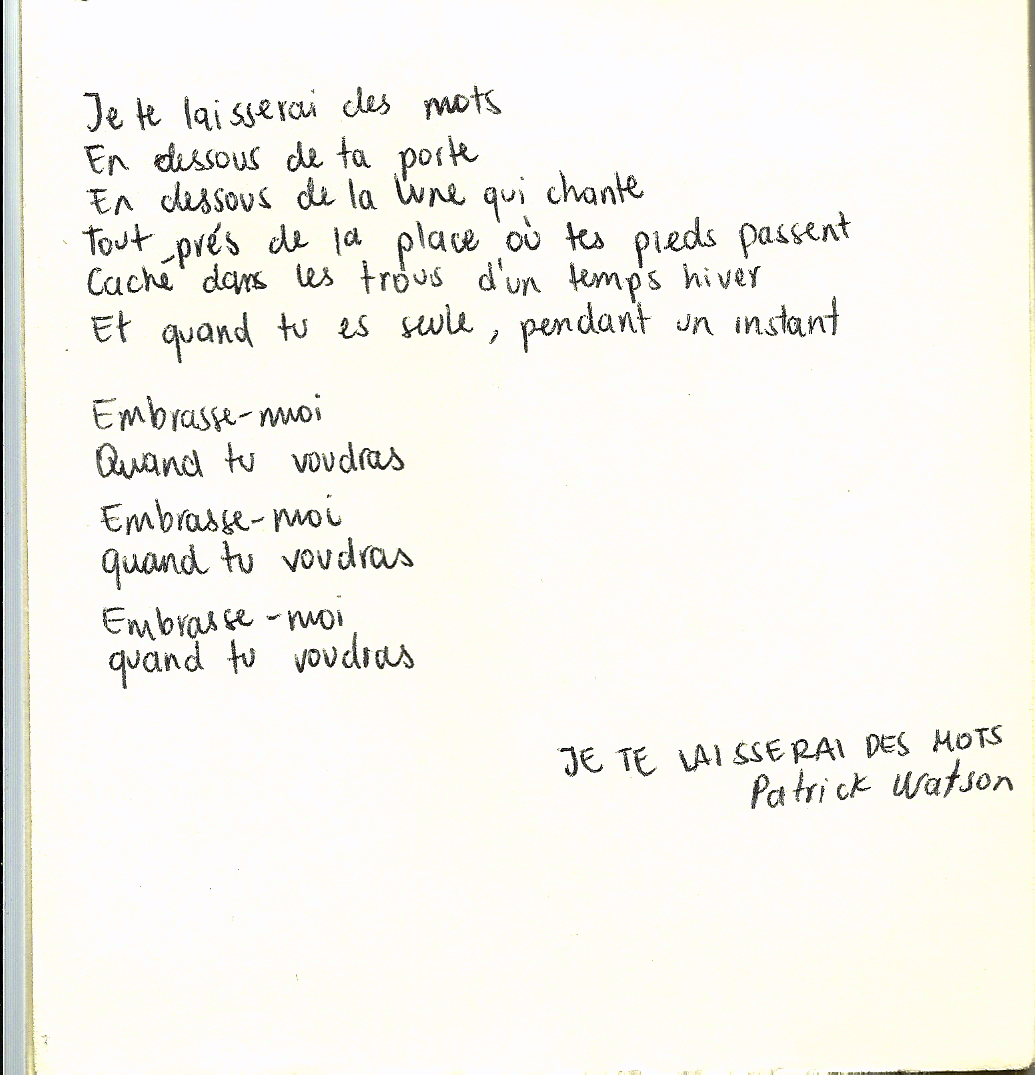 Je te laisserai des mots
En dessous de ta porte
En dessous de la lune qui chante
Tout près de la place où tes pieds passent
Caché dans les trous d'un temps hiver
Et quand tu es seule, pendant un instant
Embrasse-moi
Quand tu voudras
Embrasse-moi
quand tu voudras
Embrasse-moi
quand tu voudras
JE TE LAISSERAI DES MOTS
Patrick Watson